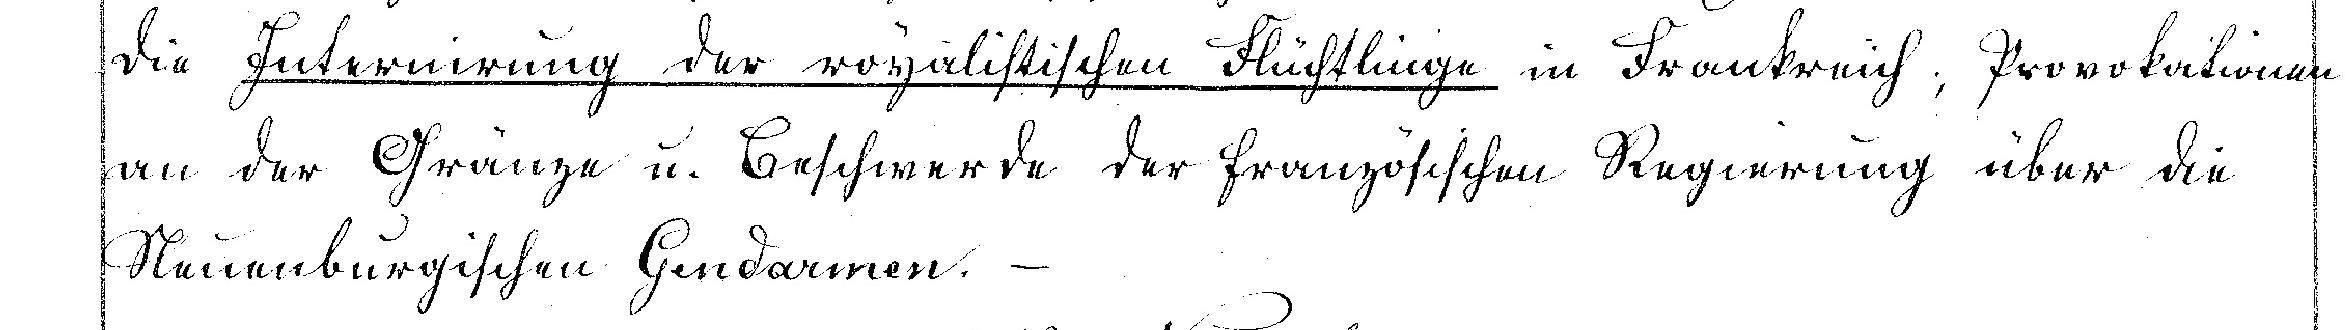 die Internirung der royalistischen Flüchtlinge in Frankreich; Provokationen
an der Gränze u. Beschwerde der französischen Regierung über die
Neuenburgischen Gendarmen. –